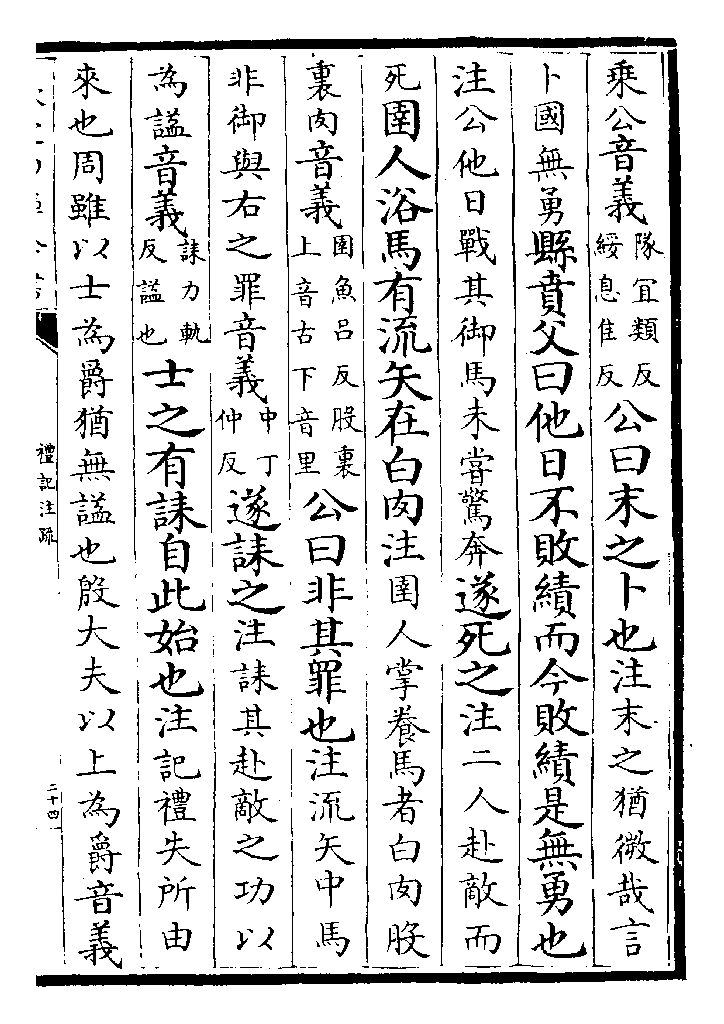 乘公音義隊冝類反綏息隹反公曰末之卜也注末之猶微哉言
卜國無勇縣賁父曰他日不敗績而今敗績是無勇也
注公他日戰其御馬未嘗驚奔遂死之注二人赴敵而
死圉人浴馬有流矢在白肉注圉人掌養馬者白肉股
裏肉音義圉魚呂反股裏上音古下音里公曰非其罪也注流矢中馬
非御與右之罪音義中丁仲反遂誄之注誄其赴敵之功以
為謚音義誄力軌反謚也士之有誄自此始也注記禮失所由
來也周雖以士為爵猶無謚也殷大夫以上為爵音義
禮記注疏
二十四